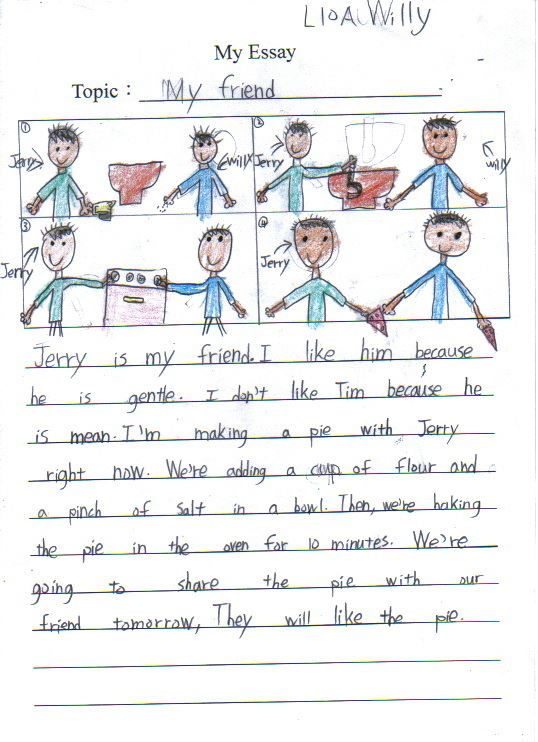 L10A Willy
My Essay
Topic: My friend
① ②
Jerry Willy Jerry Willy
③ ④
Jerry Jerry
Jerry is my friend. I like him because
he is gentle. I don't like Tim because he
is mean. I'm making a pie with Jerry
right now. We're adding a cup of flour and
a pinch of salt in a bowl. Then, we're baking
the pie in the oven for 10 minutes. We're
going to share the pie with our
friend tomorrow, They will like the pie.